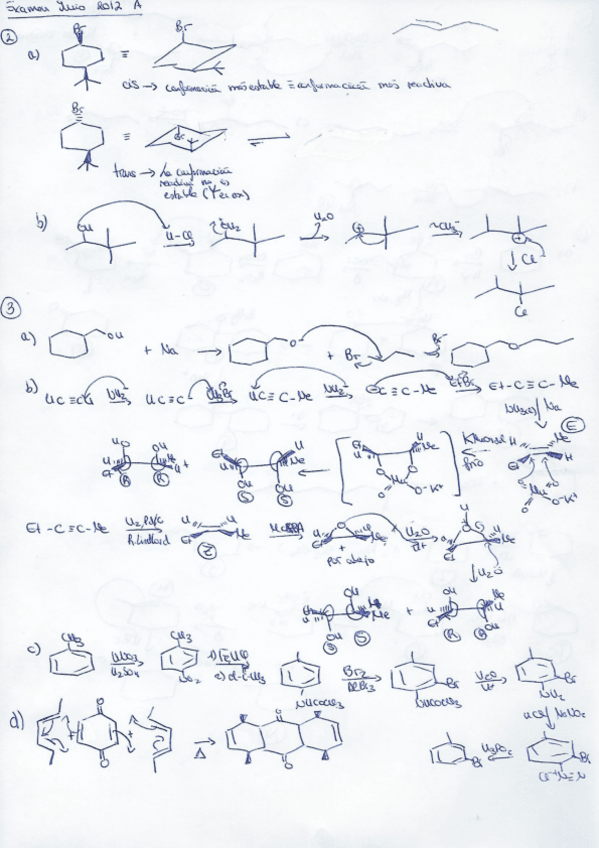 Examen Junio 2012 A
2
a) Br ≡ Br
cis → conformación más estable ≡ conformación más reactiva
Br ≡ Br
trans → la conformación
reactiva no es
estable
b) OH H-Cl OH2 H2O ~CH3 Cl-
Cl
3
a) OH + Na → O- + Br Br- O
b) HC≡CH NH2- HC≡C- CH3Br HC≡C-Me NH2- C≡C-Me EtBr Et-C≡C-Me
NH3(l) Na
E
KMnO4 frío
Et-C≡C-Me H2, Pd/C R. Lindlard Z MCPBA + por abajo H2O H+
H2O
c) CH3 HNO3 H2SO4 CH3 NO2 NHCOCH3 Br2 AlBr3 Br NHCOCH3 H2O H+ Br NH2
HCl NaNO2
d) Δ H3PO2 Br